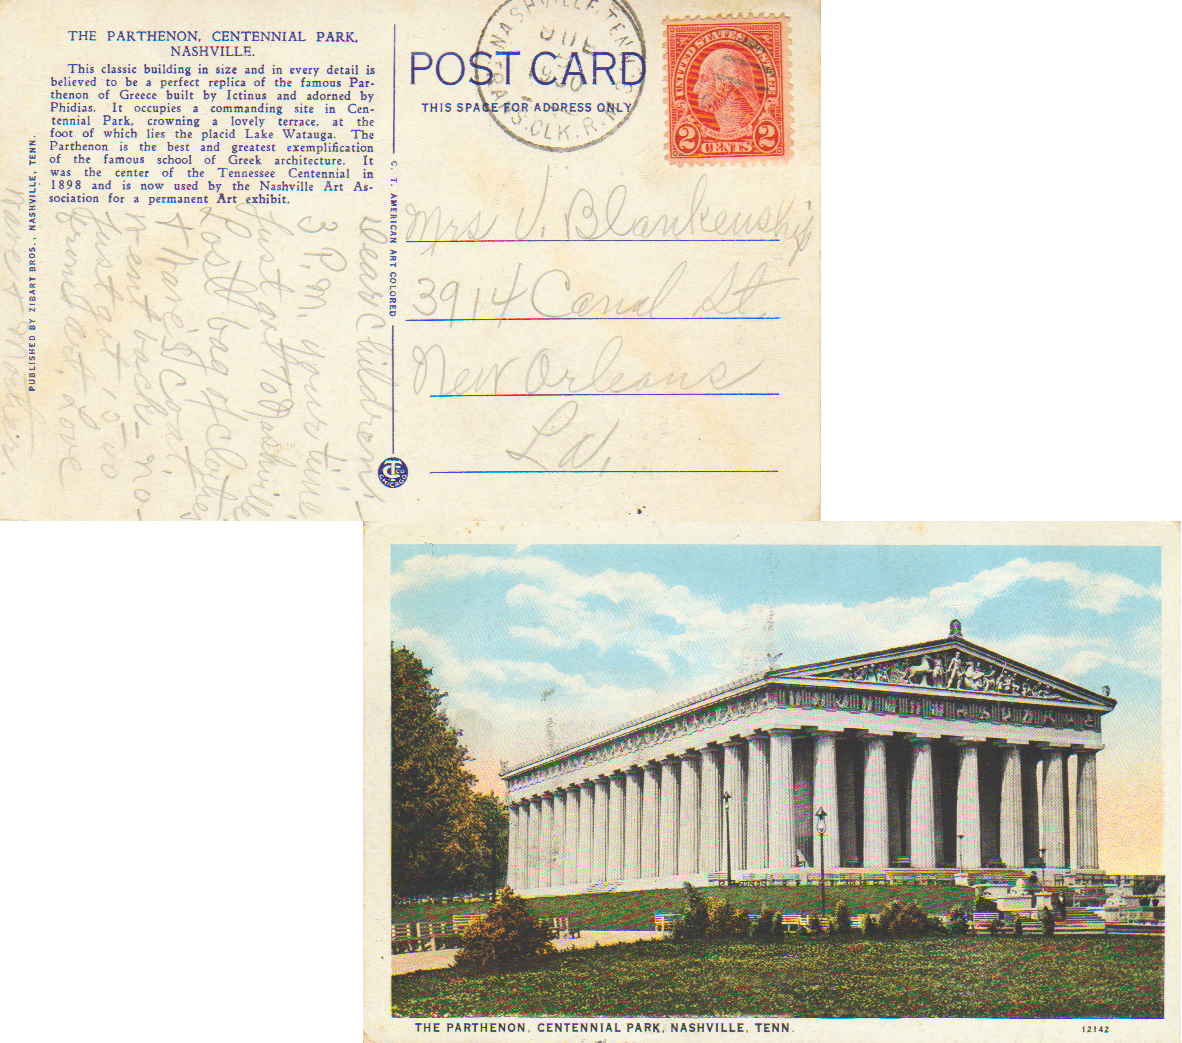 THE PARTHENON, CENTENNIAL PARK,
NASHVILLE.
This classic building in size and in every detail is
believed to be a perfect replica of the famous Par-
thenon of Greece built by Ictinus and adorned by
Phidias. It occupies a commanding site in Cen-
tennial Park, crowning a lovely terrace, at the
foot of which lies the placid Lake Watauga. The
Parthenon is the best and greatest exemplification
of the famous school of Greek architecture. It
was the center of the Tennessee Centennial in
1898 and is now used by the Nashville Art As-
sociation for a permanent Art exhibit.
PUBLISHED BY ZIBART BROS., NASHVILLE, TENN.
Dear Children-
3 P.M. your time
Just got to Nashville
Lost bag of clothes
& Mare's Coat.
went back - no-
Just out 10 00
love
C. T. AMERICAN ART COLORED
CHICAGO
POST CARD
THIS SPACE FOR ADDRESS ONLY
NASHVILLE, TENN.
1930
CLK. R.
UNITED STATES POSTAGE
2 CENTS 2
Mrs V. Blankenship
3914 Canal St.
New Orleans
La.
THE PARTHENON, CENTENNIAL PARK, NASHVILLE, TENN.
12142